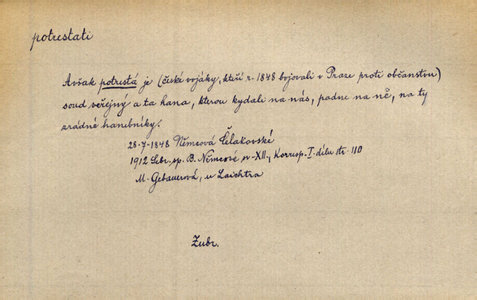 potrestati
Avšak potrestá je (české vojáky, kteří r. 1848 bojovali v Praze proti občanstvu)
soud veřejný a ta hana, kterou kydali na nás, padne na ně, na ty
zrádné hanebníky.
28-7-1848 Němcová Čelakovské
1912 Sebr. sp. B. Němcové sv. XII, Korresp. I. dílu str. 110
M. Gebauerová, u Laichtra
Zubr.